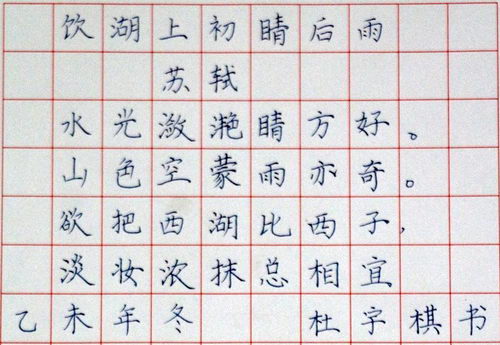 饮湖上初晴后雨
苏轼
水光潋滟晴方好。
山色空蒙雨亦奇。
欲把西湖比西子,
淡妆浓抹总相宜
乙未年冬 杜字棋书